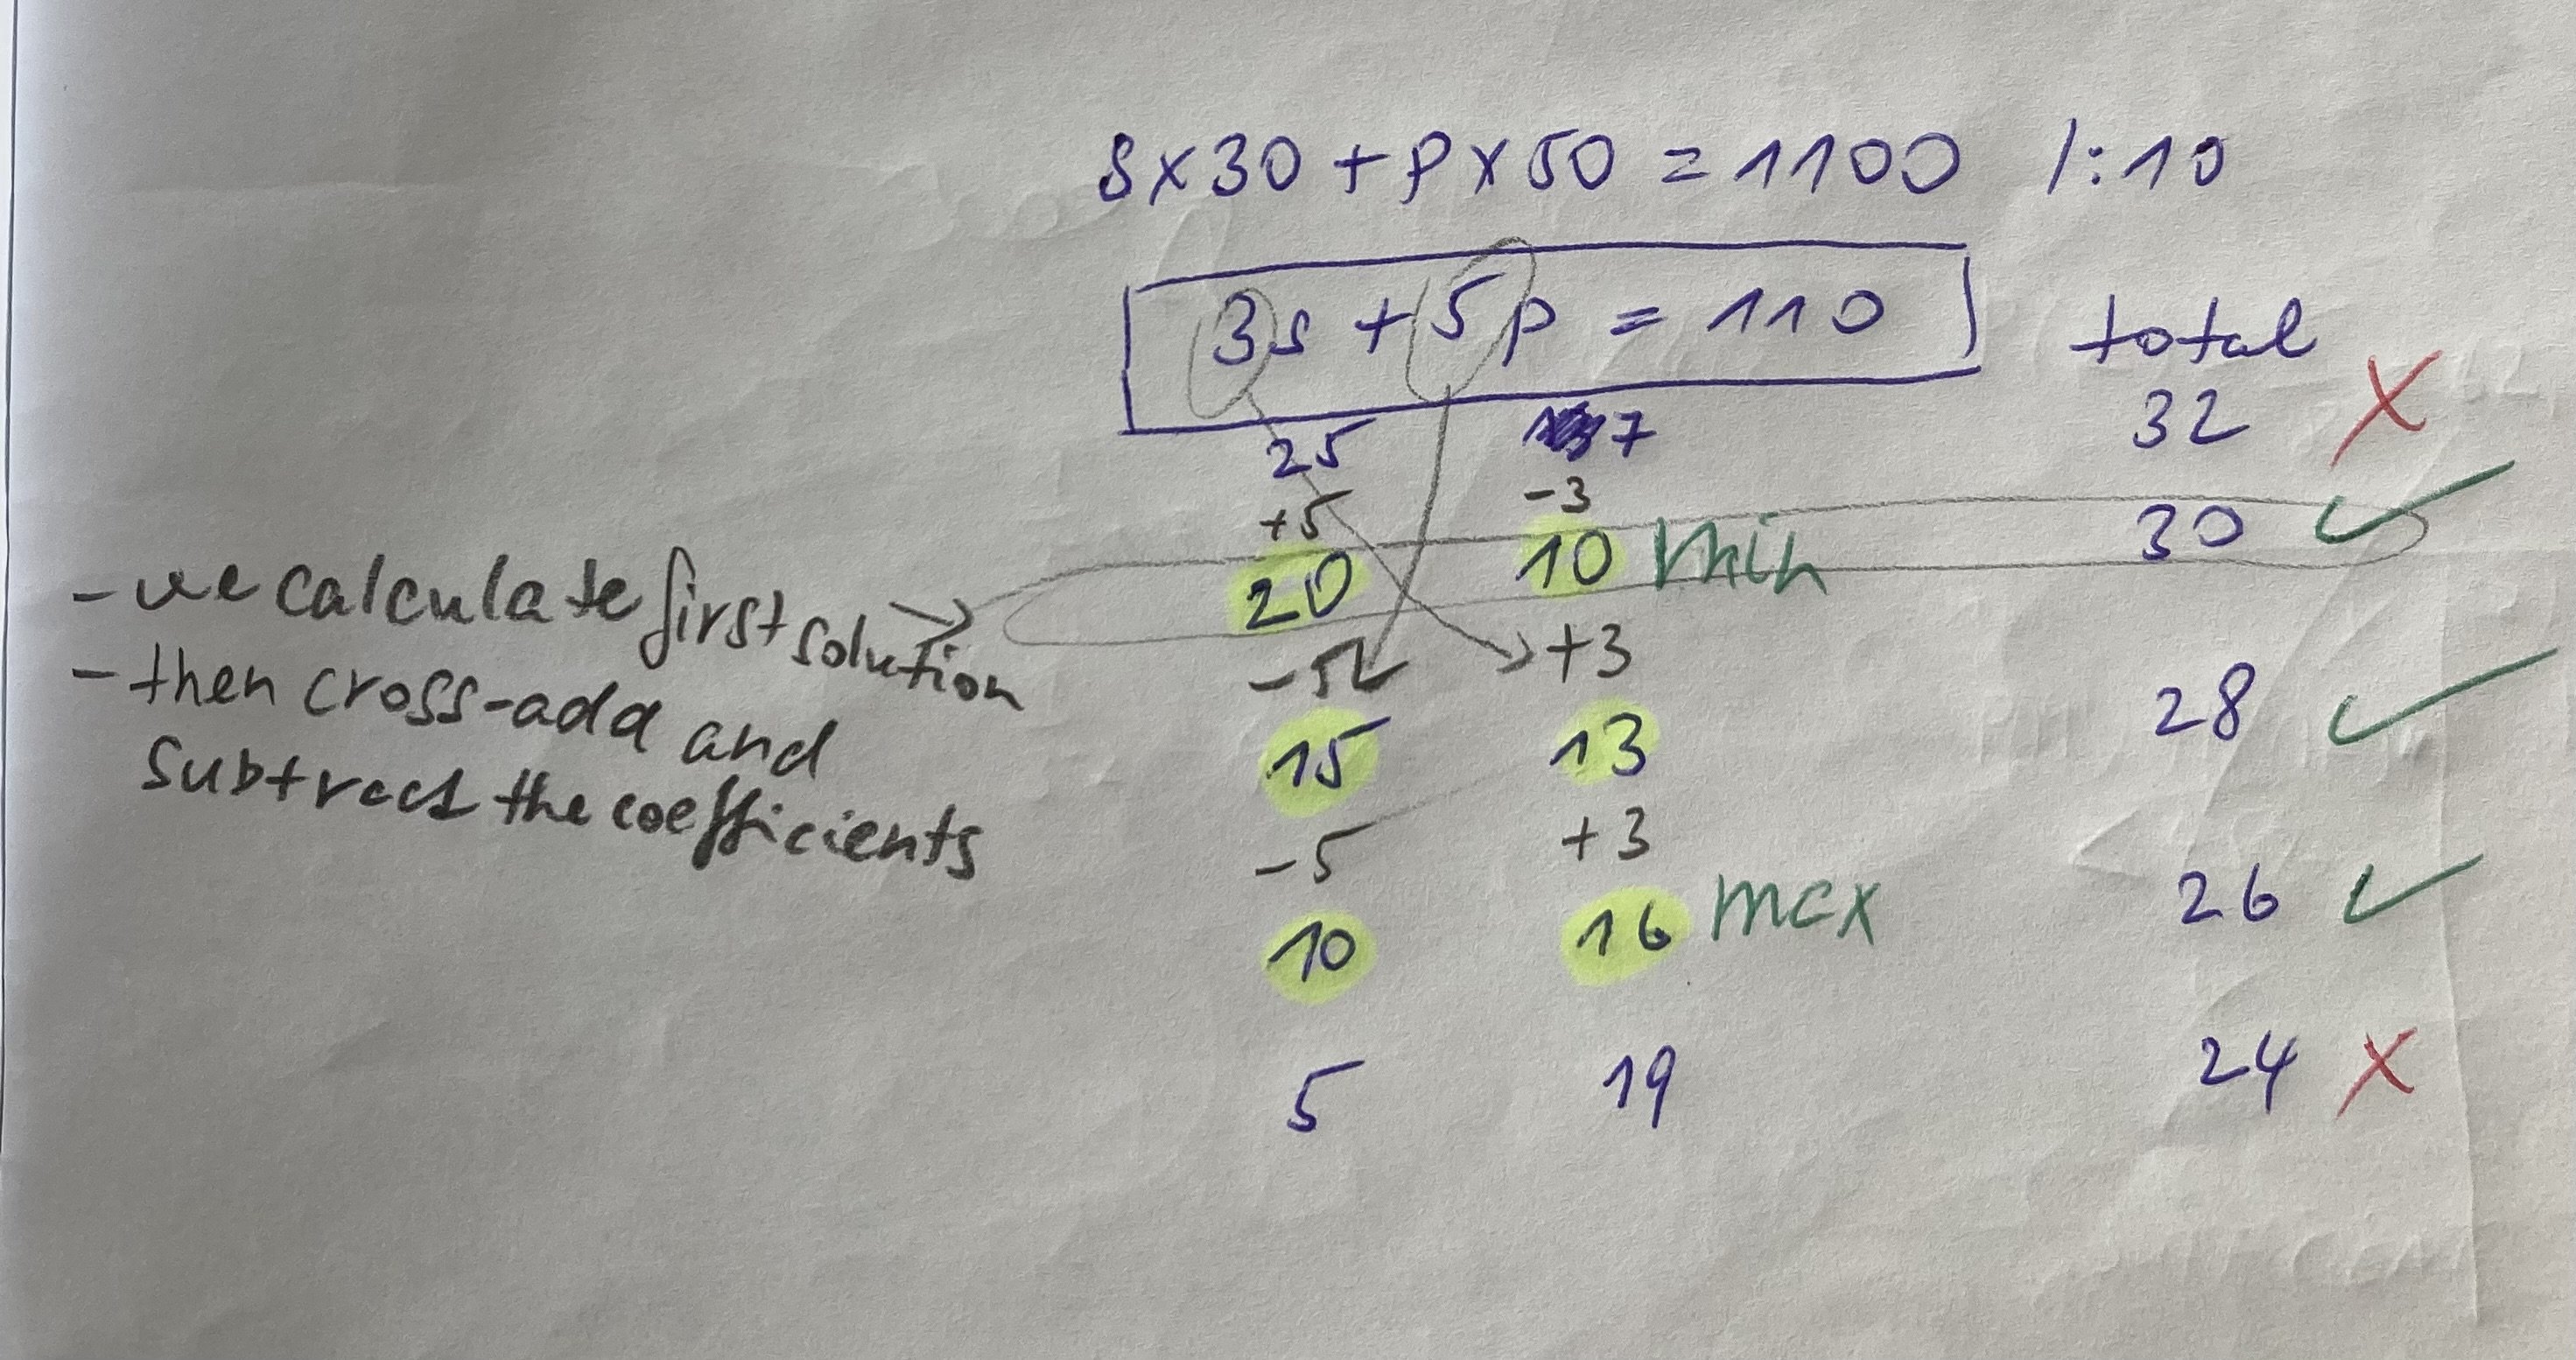 s x 30 + p x 50 = 1100 /:10
3s + 5p = 110
total
25 7 32 X
+5 -3
20 10 min 30 ✓
- we calculate first solution
-5 +3
- then cross-add and
15 13 28 ✓
subtract the coefficients
-5 +3
10 16 max 26 ✓
5 19 24 X